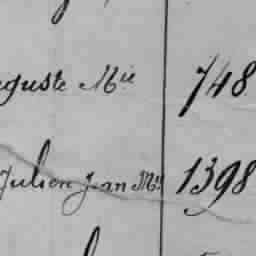 guste Mie 748
Julien Jean Mie 1398